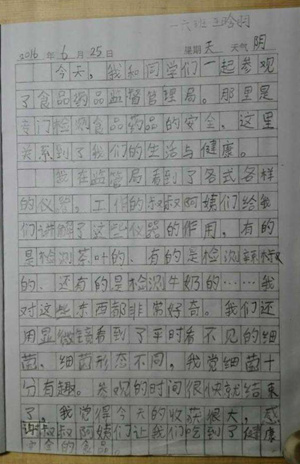 一六班 王吟润
2016年6月25日 星期天 天气阴
今天，我和同学们一起参观
了食品药品监督管理局。那里是
专门检测食品药品的安全，这里
关系到了我们的生活与健康。
我在监管局看到了各式各样
的仪器，工作的叔叔阿姨们给我
们讲解了这些仪器的作用，有的
是检测茶叶的、有的是检测
的、还有的是检测牛奶的……我
对这些东西都非常好奇。我们还
用显微镜看到了平时看不见的细
菌，细菌形态不同，我觉细菌十
分有趣。参观的时间很快就结束
了，我觉得今天的收获很大，感
谢叔叔阿姨们让我们吃到了健康
安全的食品